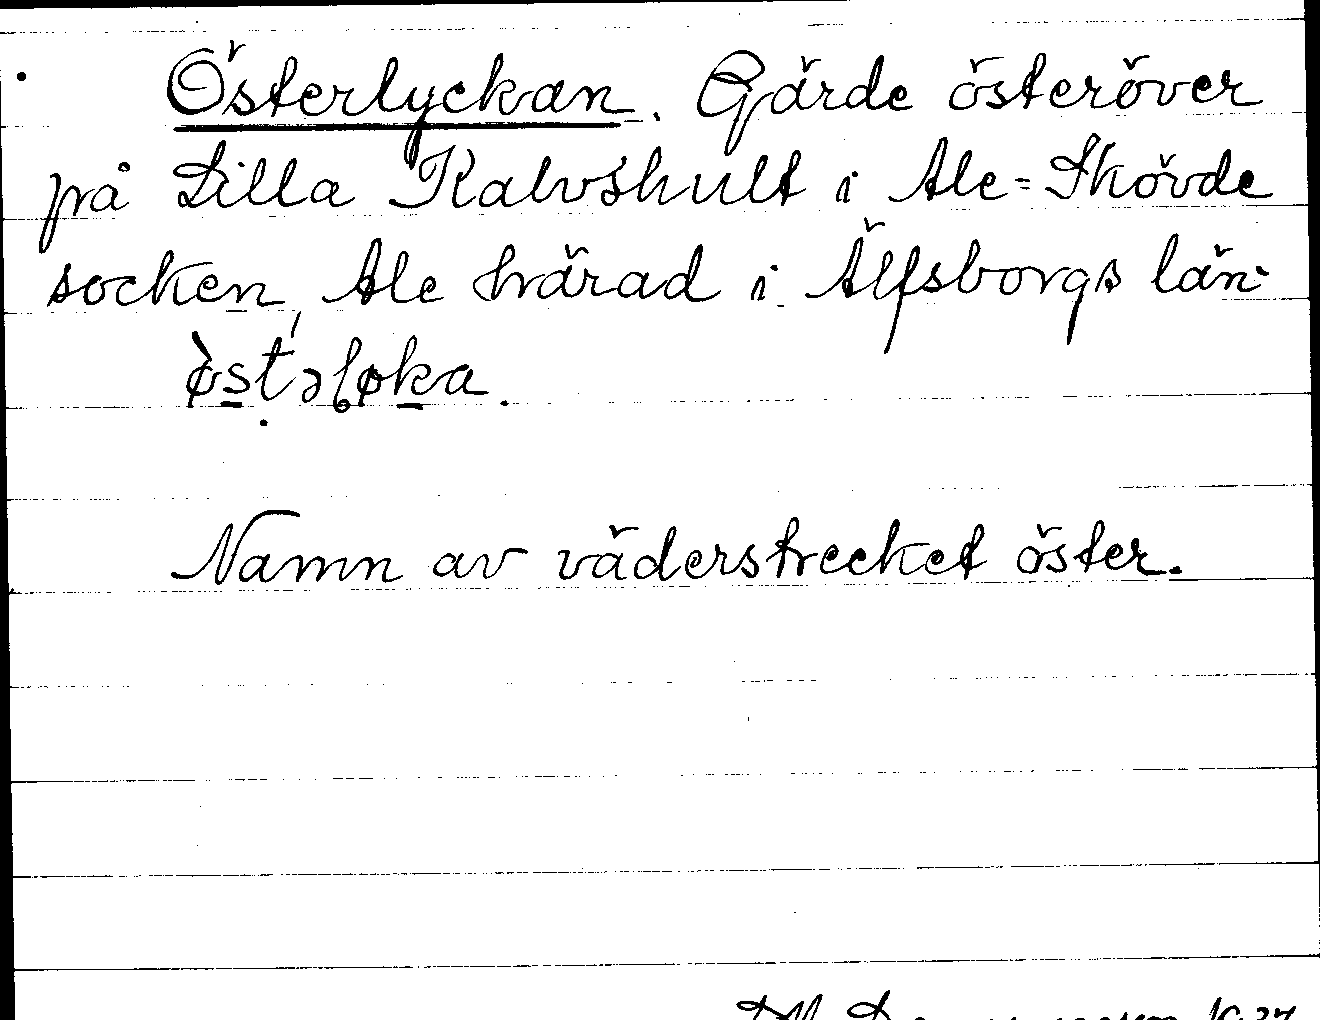 Österlyckan. Gärde österöver
på Lilla Kalvshult i Ale=Skövde
socken, Ale härad i Älfsborgs län.
Namn av väderstrecket öster.